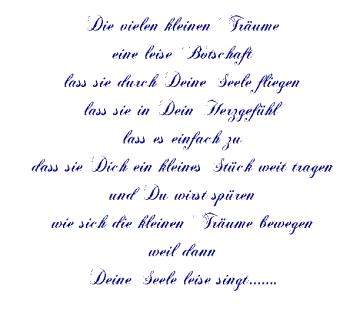 Die vielen kleinen Träume
eine leise Botschaft
lass sie durch Deine Seele fliegen
lass sie in Dein Herzgefühl
lass es einfach zu
dass sie Dich ein kleines Stück weit tragen
und Du wirst spüren
wie sich die kleinen Träume bewegen
weil dann
Deine Seele leise singt.......